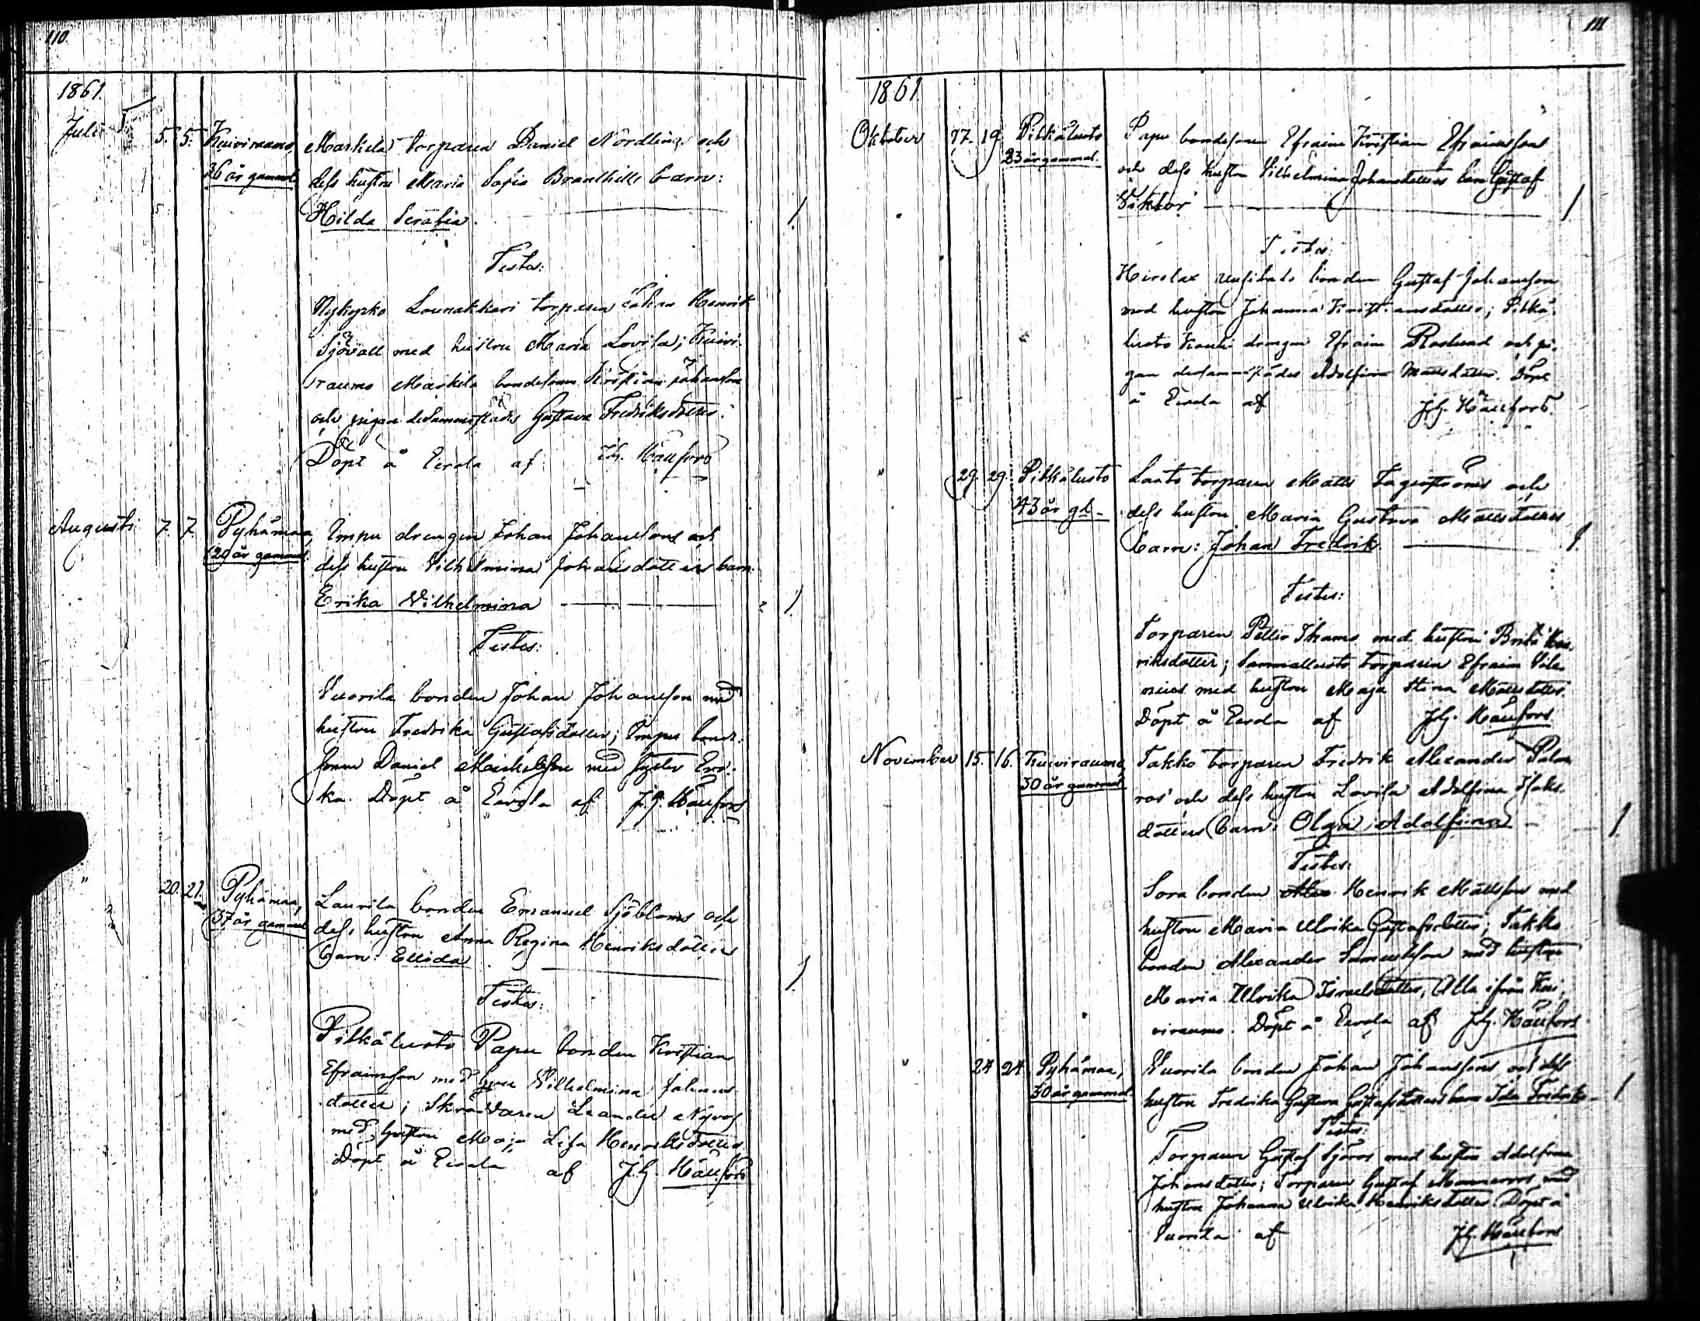 110
1861.
Juli 5. 5. Kuivirauma, Markela torparen Daniel Nordlings och
36 år gammal dess hustru Maria Sofia Branthills barn:
Hilda Serafia.
Testes:
Nykyrko Lounakkari torparen Johan Henrik
Sjövall med hustru Maria Lovisa; Kuivi-
raumo Markela bondesonen Kristian Johansson
och pigan dersammastädes Gustava Fredriksdotter.
Döpt å Eerola af J.G. Häufors
Augusti 7. 7. Pyhämaa, Impu drengen Johan Johanssons och
29 år gammal dess hustru Vilhelmina Johansdotters barn
Erika Vilhelmina
Testes:
Vuorila bonden Johan Johansson med
hustru Fredrika Gustafsdotter; Impu bonde-
sonen Daniel Michelsson med syster Eri-
ka. Döpt å Eerola af J.G. Häufors
" 20. 21. Pyhämaa, Laurila bonden Emanuel Sjöbloms och
37 år gammal dess hustru Anna Regina Henriksdotters
barn: Ellida
Testes:
Pitkäluoto Papu bonden Kristian
Efraimsson med Vilhelmina Johans-
dotter; Skräddaren Leander
med hustru Maja Lisa Henriksdotter
Döpt å Eerola af J.G. Häufors
111
1861
Oktober 17. 19. Pitkäluoto Papu bondesonen Efraim Kristian Efraimssons
23 år gammal. och dess hustru Vilhelmina Johansdotters barn Gustaf
Viktor
Testes:
Hirslax bonden Gustaf Johansson
med hustru Johanna Kristiansdotter; Pitkä-
luoto drengen Efraim Roslund och pi-
gan dersammastädes Adolfina Mattsdotter. Döpt
å Eerola af J.G. Häufors.
" 29. 29. Pitkäluoto Laato torparen Matts och
43 år gl. dess hustru Maria Gustava Mattsdotters
barn: Johan Fredrik
Testes:
Torparen Petter Thams med hustru Brita Hen-
riksdotter; torparen Efraim
med hustru Maja Stina Mattsdotter.
Döpt å Eerola af J.G. Häufors
November 15. 16. Kuivirauma, Takko torparen Fredrik Alexander Palm-
30 år gammal ros' och dess hustru Lovisa Adolfina Isaks-
dotters barn: Olga Adolfina
Testes:
Sora bonden Henrik Mattsson med
hustru Maria Ulrika Gustafsdotter; Takko
bonden Alexander Samuelsson med hustru
Maria Ulrika Israelsdotter, Alla ifrån Kui-
viraumo. Döpt å Eerola af J.G. Häufors
" 24 24 Pyhämaa, Vuorila bonden Johan Johanssons och dess
30 år gammal. hustru Fredrika Gustava Gustafsdotters barn Ida Fredrika
Testes:
Torparen Gustaf Sjöros med hustru Adolfina
Johansdotter; Torparen Gustaf med
hustru Johanna Ulrika Henriksdotter. Döpt å
Vuorila af J.G. Häufors